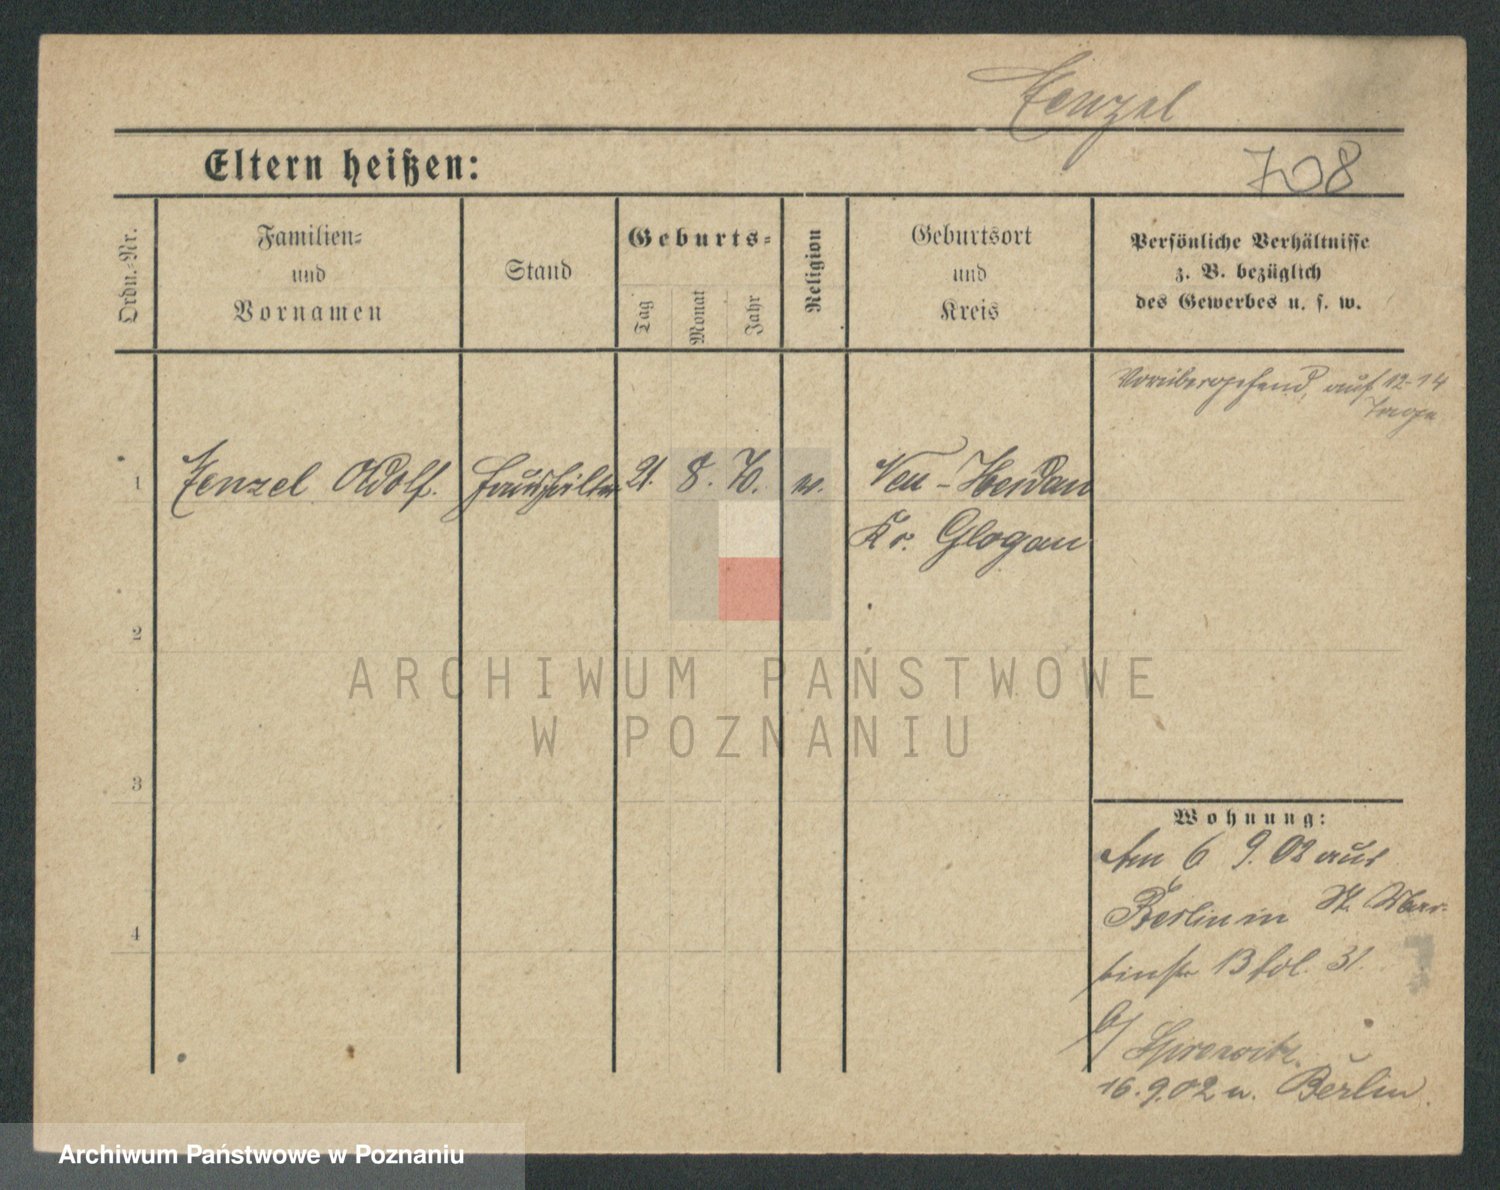 Tenzel
708
Eltern heißen:
Ordn.-Nr.
Familien-
und
Vornamen
Stand
Geburts-
Tag
Monat
Jahr
Religion
Geburtsort
und
Kreis
Persönliche Verhältnisse
z. B. bezüglich
des Gewerbes u. s. w.
Vorübergehend, auf 12-14
Tage
1 Tenzel Adolf. Haushälter 21. 8. 70.
Neu-
Kr. Glogau
2
ARCHIWUM PAŃSTWOWE
W POZNANIU
3
Wohnung:
Am 6 9. 02 aus
Berlin in St. Mar-
tinstr 13 fol. 31.
b/
4
16.9.02 n. Berlin.
Archiwum Państwowe w Poznaniu